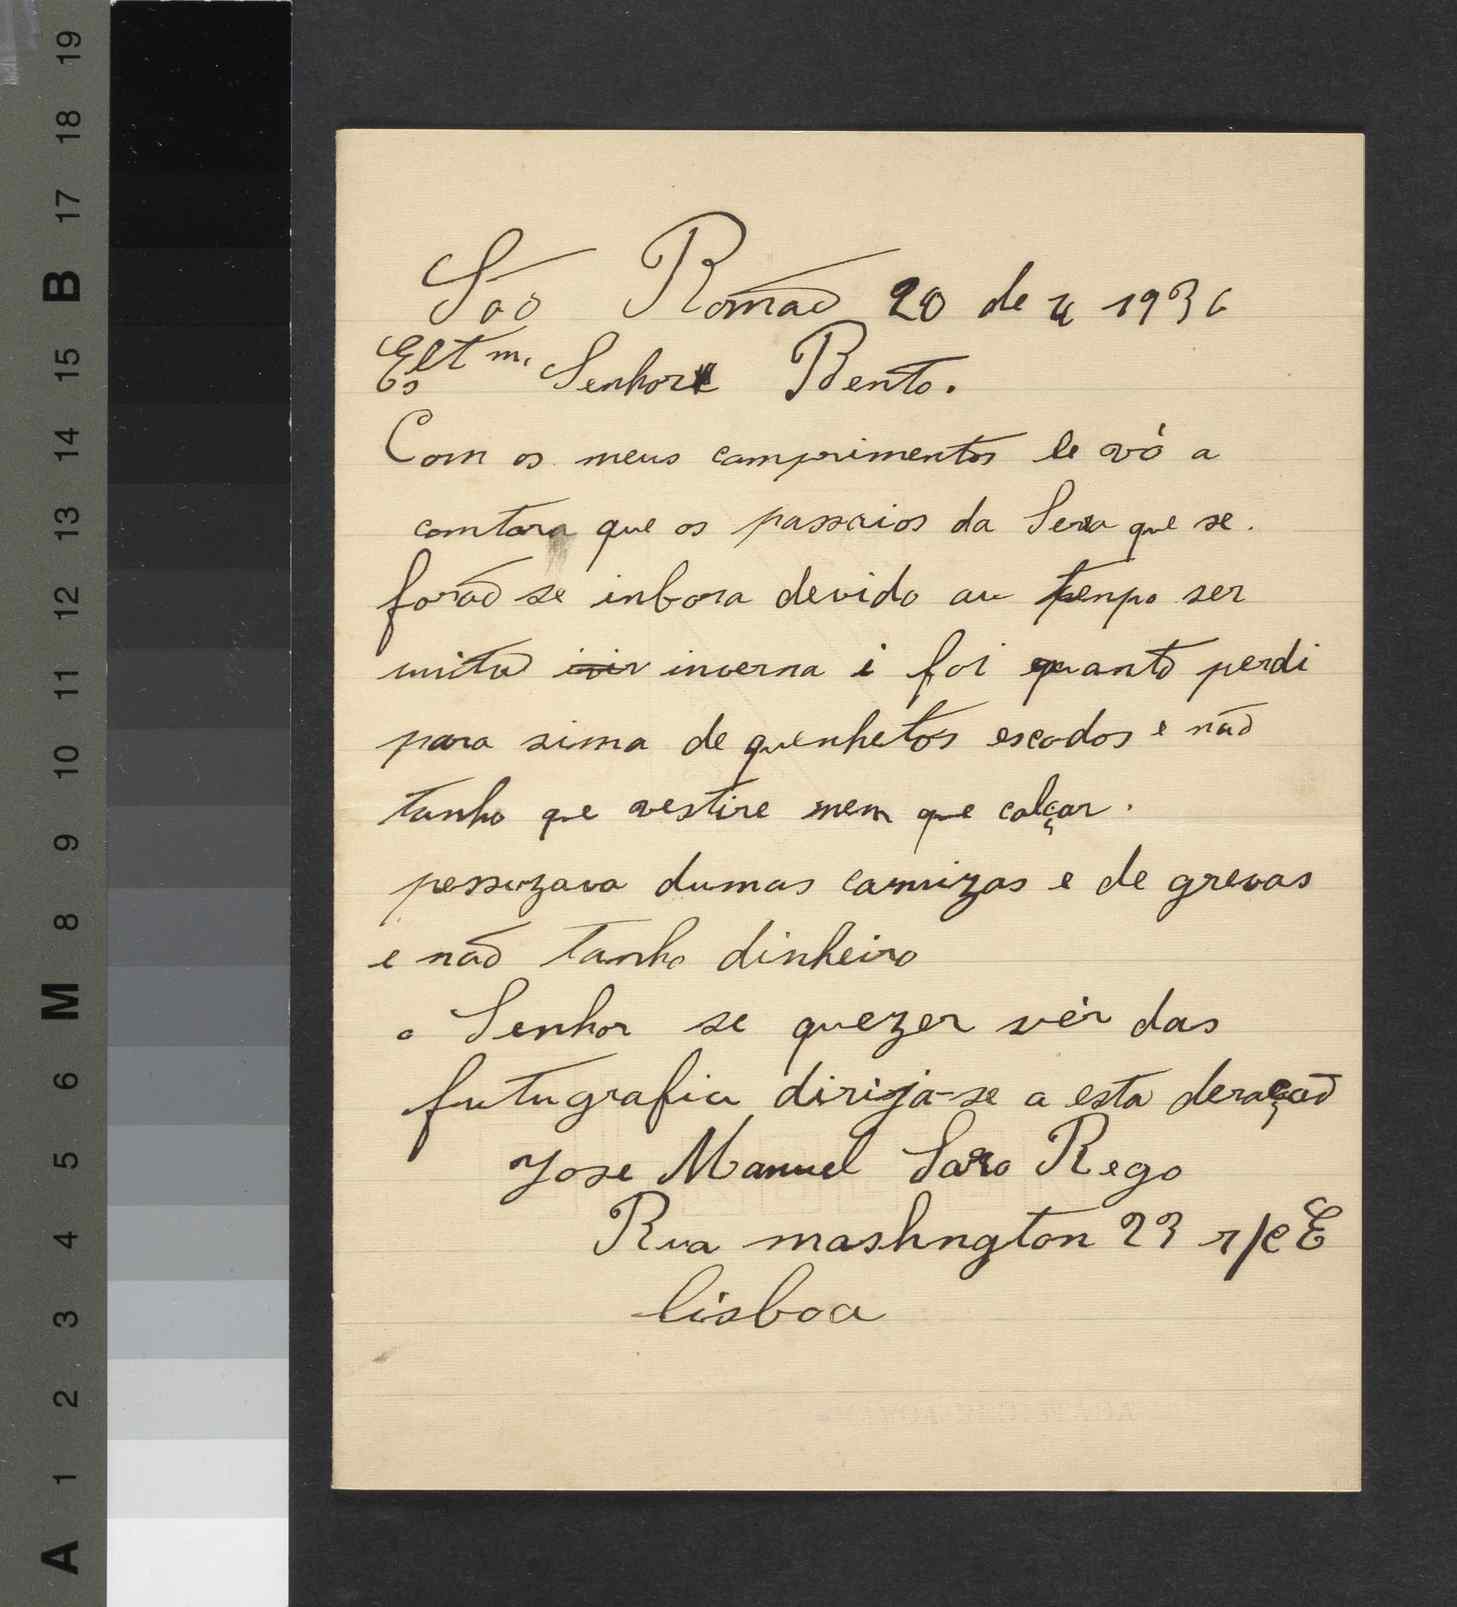 São Romão 20 de 4 1936
Elt m. Es Senhor Bento.
Com os meus camprimentos le vó a
comtara que os passaios da Sera que se.
forão se inbora devido au tenpo ser
muitu inverna i foi quanto perdi
para sima de quenhetos escodos e não
tanho que vestire mem que calçar.
pessuzava dumas camizas e de grevas
e não tanho dinheiro
o Senhor se quezer vér das
futugrafia dirija-se a esta deração
Jose Manuel Saro Rego
Rua mashngton 23 r/c E
lisboa
A 1 2 3 4 5 6 M 8 9 10 11 12 13 14 15 B 17 18 19